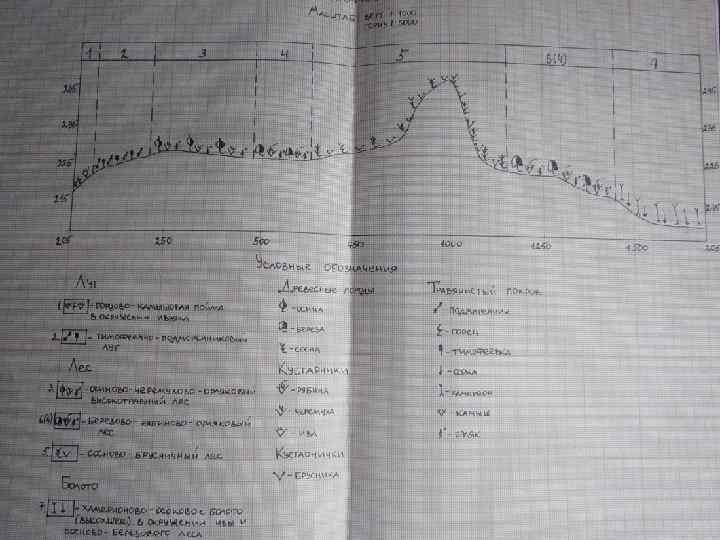 Масштаб верт 1:1000
гориз 1:5000
1 2 3 4 5 6(4) 7
245 245
235 235
225 225
215 215
205 205
205 250 500 750 1000 1250 1500 205
Условные обозначения
Луг
1 - горцово-камышовая пойма
в окружении ивняка
2 - тимофеечно-подмаренниковый
луг
Лес
3 - осиново-черемухово-снытевый
высокотравный лес
6(4) - березово-рябиново-
лес
5 - сосново-брусничный лес
Болото
7 - осоковое болото
(высохшее) в окружении ивы и
сосново-березового леса
Древесные породы
- осина
- береза
- сосна
Кустарники
- рябина
- черемуха
- ива
Кустарнички
- брусника
Травянистый покров
подмаренник
- горец
- тимофеевка
- осока
- камыш